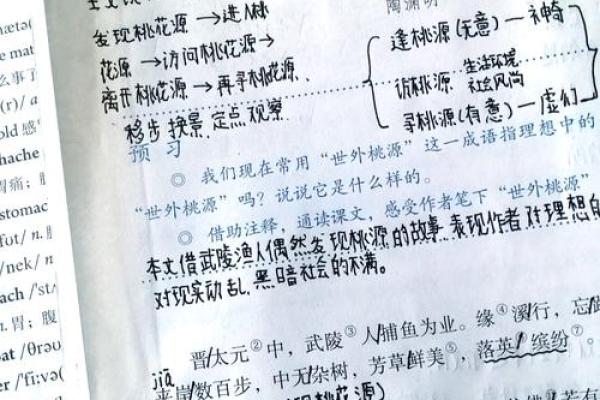 陶渊明
发现桃花源→进入桃
花源→访问桃花源→
离开桃花源→再寻桃花源.
移步换景.定点观察
逢桃源(无意)—神奇
访桃源 生活环境 社会风尚
寻桃源(有意)—虚幻
预习
◎ 我们现在常用“世外桃源”这一成语指理想中的
“世外桃源”吗?说说它是什么样的。
◎ 借助注释,通读课文,感受作者笔下“世外桃源”
本文借武陵渔人偶然发现桃源的故事.表现作者对理想的
对现实动乱.黑暗社会的不满。
晋/太元②中,武陵③人/捕鱼为业。缘④溪/行,忘
jiā
夹岸/数百步,中无/杂树,芳草鲜美⑤,落英/缤纷⑦。
mæta(
e mat
么事了
(r)/ a
old 感
hache
胃痛;
stomac
fʊt/ n.
/nek/ n
ach /'stʌ
n.胃;腹
oat /θrəʊ
er /'fi:və(